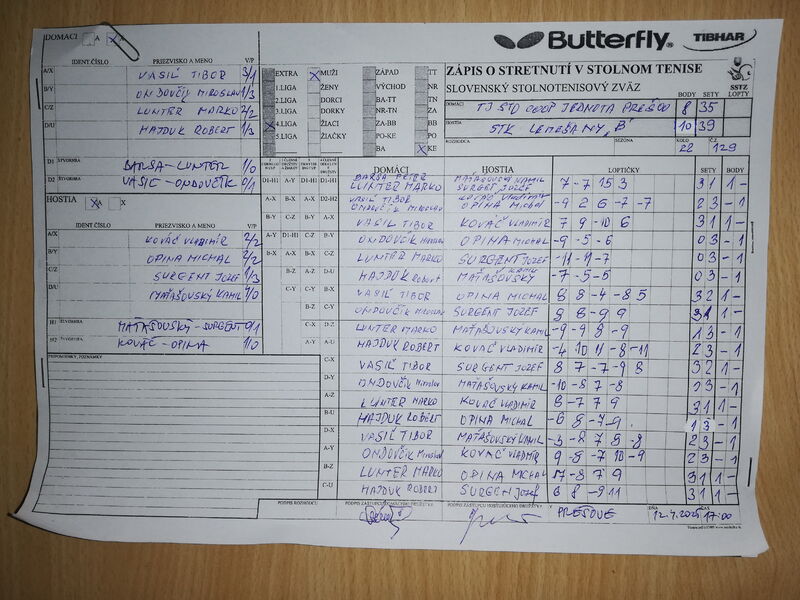 DOMÁCI A X
Butterfly TIBHAR
IDENT.ČÍSLO PRIEZVISKO A MENO V/P
A/X VASIĽ TIBOR 3/1
B/Y ONDOVČÍK MIROSLAV 1/3
C/Z LUNTER MARKO 2/2
D/U HAJDUK ROBERT 1/3
D1 ŠTVORHRA BARŠA-LUNTER 1/0
D2 VASIĽ-ONDOVČÍK 0/1
HOSTIA A X
IDENT ČÍSLO PRIEZVISKO A MENO V/P
A/X KOVÁČ VLADIMÍR 2/2
B/Y OPINA MICHAL 2/2
C/Z SURGENT JOZEF 1/3
D/U MAŤAŠOVSKÝ KAMIL
H1 ŠTVORHRA MAŤAŠOVSKÝ-SURGENT 0/1
H2 ŠTVORHRA KOVÁČ-OPINA 1/0
PRIPOMIENKY, POZNÁMKY
EXTRA X MUŽI ZÁPAD TT
1.LIGA ŽENY VÝCHOD NR
2.LIGA DORCI BA-TT TN
3.LIGA DORKY NR-TN ZA
X 4.LIGA ŽIACI ZA-BB BB
5.LIGA ŽIAČKY PO-KE PO
BA X KE
ZÁPIS O STRETNUTÍ V STOLNOM TENISE
SLOVENSKÝ STOLNOTENISOVÝ ZVÄZ
SSTZ
BODY SETY LOPTY
DOMÁCI TJ STO COOP JEDNOTA PREŠOV 8 35
HOSTIA STK LEMEŠANY "B" 10 39
ROZHODCA SEZÓNA KOLO 22 Č.Z. 129
DOMÁCI HOSTIA LOPTIČKY SETY BODY
D1-H1 A-Y D1-H1 D1-H1 BARŠA PETER LUNTER MARKO MAŤAŠOVSKÝ KAMIL SURGENT JOZEF 7 -7 15 3 3 1 1 -
A-X B-X A-X D2-H2 VASIĽ TIBOR ONDOVČÍK Miroslav KOVÁČ VLADIMÍR OPINA MICHAL -9 2 6 -7 -7 2 3 - 1
B-Y C-Z B-Y A-X VASIĽ TIBOR KOVÁČ VLADIMÍR 7 9 -10 6 3 1 1 -
A-Y D1-H1 C-Z B-Y ONDOVČÍK Miroslav OPINA MICHAL -9 -5 -6 0 3 - 1
B-X A-X B-X C-Z LUNTER MARKO SURGENT JOZEF -11 -9 -7 0 3 - 1
B-Z A-Z D-U HAJDUK Robert MAŤAŠOVSKÝ KAMIL -7 -5 -5 0 3 - 1
C-Y C-Y B-X VASIĽ TIBOR OPINA MICHAL 8 8 -4 -8 5 3 2 1 -
B-Z C-Y ONDOVČÍK Miroslav SURGENT JOZEF 9 8 -9 9 3 1 1 -
C-X D-Z LUNTER MARKO MAŤAŠOVSKÝ KAMIL -9 -9 8 -9 1 3 - 1
A-Y A-U HAJDUK ROBERT KOVÁČ VLADIMÍR -4 10 11 -8 -11 2 3 - 1
C-X VASIĽ TIBOR SURGENT JOZEF 8 -7 -7 9 8 3 2 1 -
D-Y ONDOVČÍK Miroslav MAŤAŠOVSKÝ KAMIL -10 -8 7 -8
A-Z LUNTER MARKO KOVÁČ VLADIMÍR 8 -7 7 9 3 1 1 -
B-U HAJDUK RÓBERT OPINA MICHAL -6 8 -7 -9 1 3 - 1
D-X VASIĽ TIBOR MAŤAŠOVSKÝ KAMIL -3 -8 7 8 -8 2 3 - 1
A-Y ONDOVČÍK Miroslav KOVÁČ VLADIMÍR 9 -8 -7 10 -9 2 3 - 1
B-Z LUNTER MARKO OPINA MICHAL -8 7 9 3 1 1 -
C-U HAJDUK RÓBERT SURGENT JOZEF 6 8 -9 11 3 1 1 -
PODPIS ROZHODCU PODPIS ZÁSTUPCU DOMÁCEHO DRUŽSTVA PODPIS ZÁSTUPCU HOSŤUJÚCEHO DRUŽSTVA V PREŠOVE DŇA 12.4.2025 ČAS 17:00